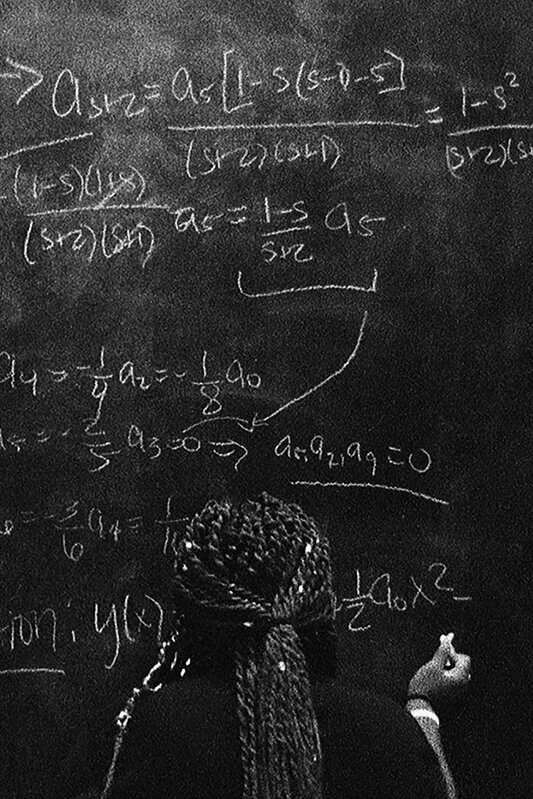 → a_{s+2} = a_s [1-s(s-1)-s] / (s+2)(s+1) = 1-s² / (s+2)(s+
(1-s)(1+s) / (s+2)(s+1) a_s = 1-s / s+2 a_s
a₄ = -1/4 a₂ = -1/8 a₀
= - 2/5 a₃ = 0 ⇒ a₅, a₇, a₉ = 0
= - 3/6 a₄ = 1/1
tion: y(x) 1/2 a₀x² -